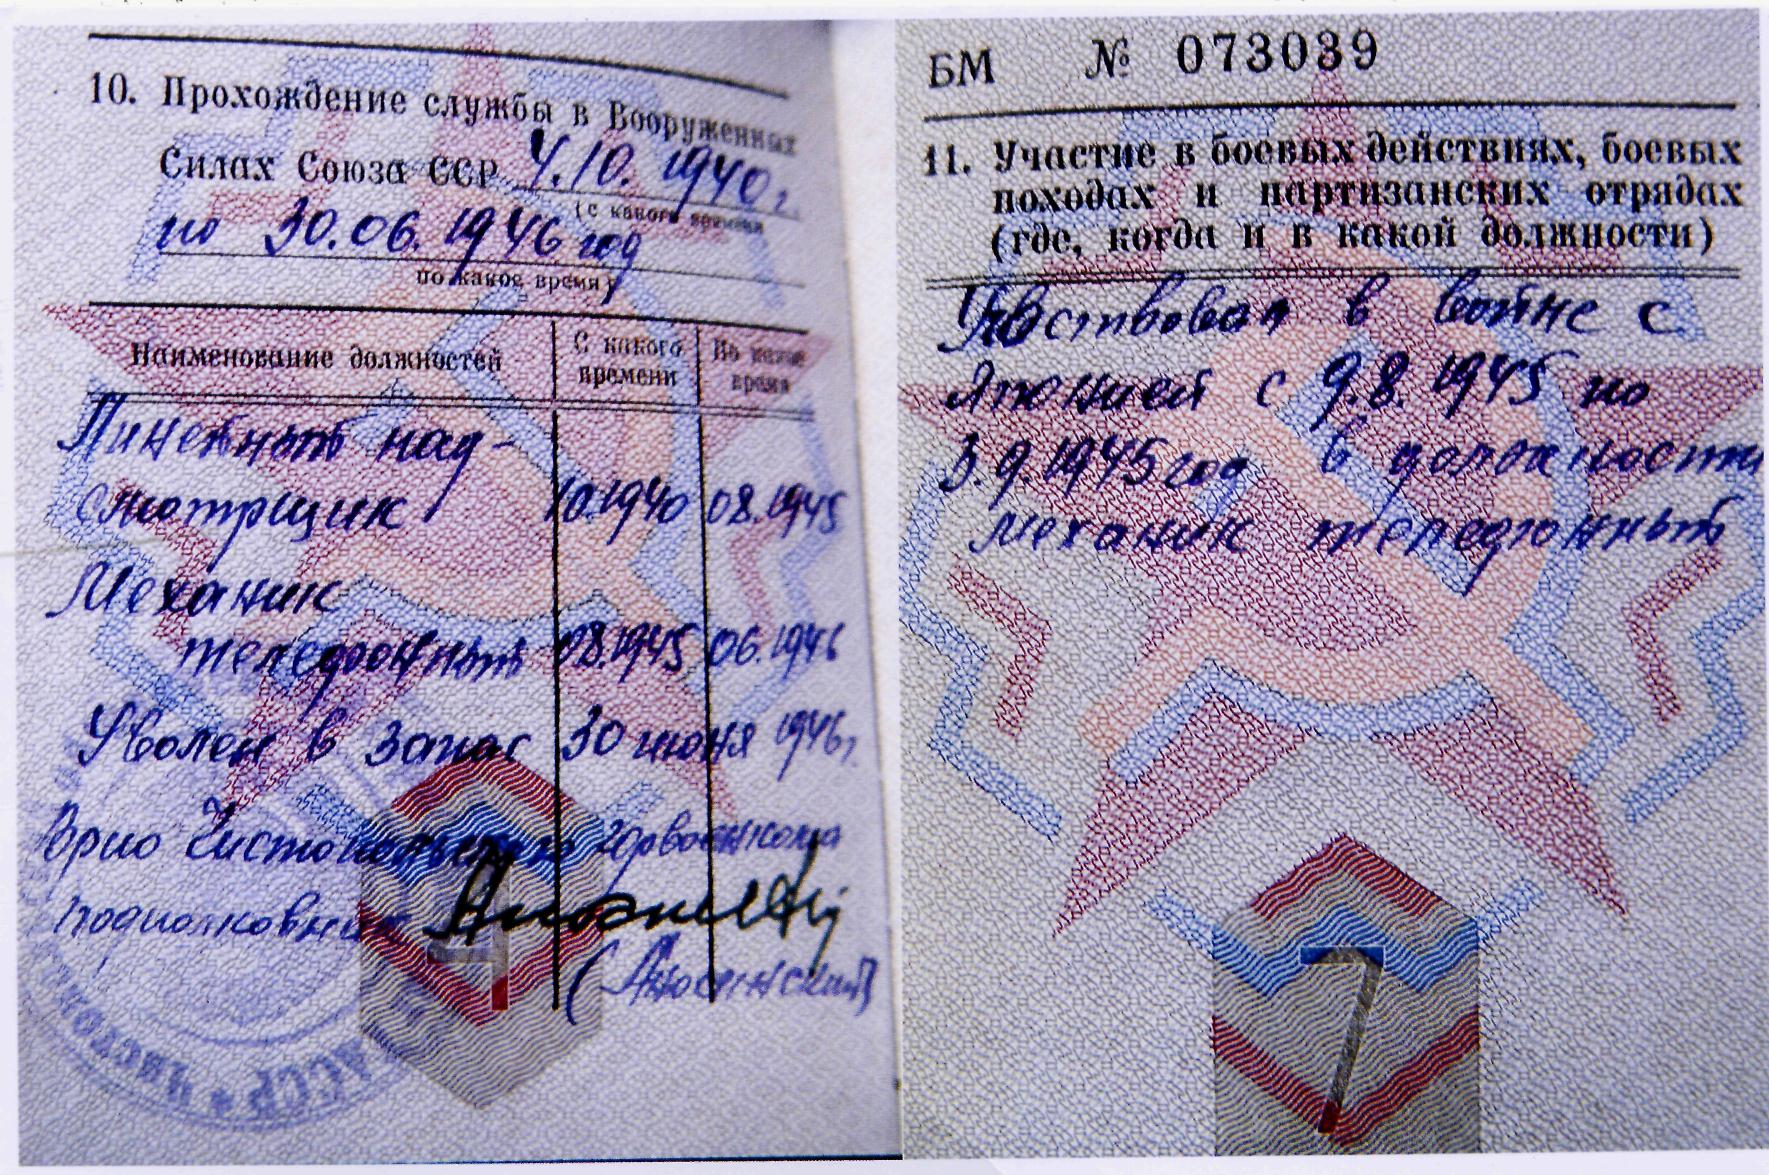 10. Прохождение службы в Вооруженных
Силах Союза ССР 4.10.1940г
(с какого времени
по 30.06.1946 год
по какое время)
Наименование должностей
С какого времени
По какое время
Линейный над-
смотрщик 10.1940 08.1945
Механик
телефонный 08.1945 06.1946
Уволен в запас 30 июня 1946г.
Врио Чистопольского горвоенкома
подполковник
(Аносинский)
АССР * ЧИСТОПО
4
БМ № 073039
11. Участие в боевых действиях, боевых
походах и партизанских отрядах
(где, когда и в какой должности)
Участвовал в войне с
Японией с 9.8.1945 по
3.9.1945 год в должности
механик телефонный
7